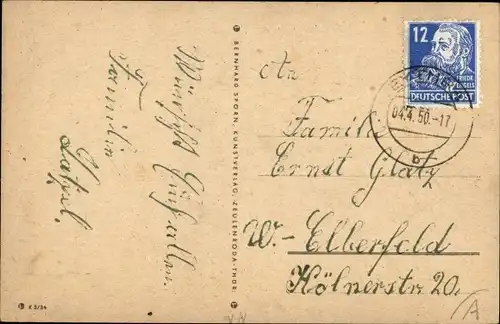 Wünscht Euch allen
Familie
12
FRIEDR. ENGELS
DEUTSCHE POST
04.4.50.-17
b
BERNHARD SPORN, KUNSTVERLAG, ZEULENRODA-THÜR.
An
Familie
Ernst Glatz
W.-Elberfeld
Kölnerstr. 20.
E 3/34
A